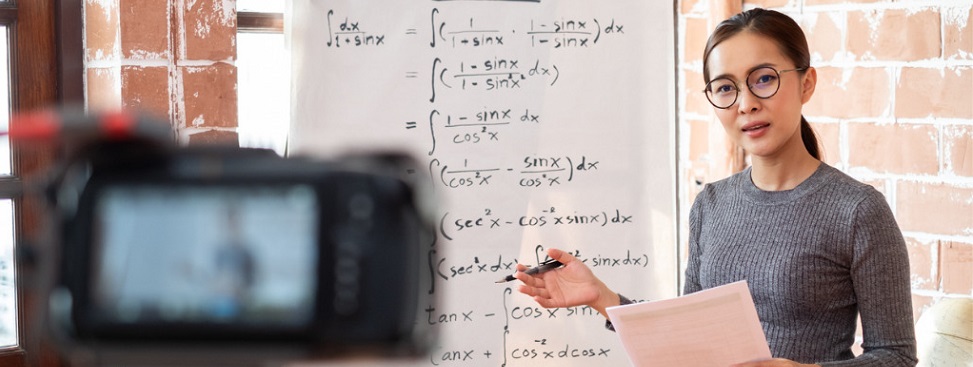 ∫ dx/(1 + sinx) = ∫(1/(1 + sinx) · (1 - sinx)/(1 - sinx)) dx
= ∫((1 - sinx)/(1 - sin²x) dx)
= ∫ (1 - sinx)/cos²x dx
= ∫(1/cos²x - sinx/cos²x) dx
∫(sec²x - cos⁻²x sinx) dx
∫(sec²x dx) - ∫ sinx dx)
tanx - ∫cos x sin
tanx + ∫cos⁻²x dcosx